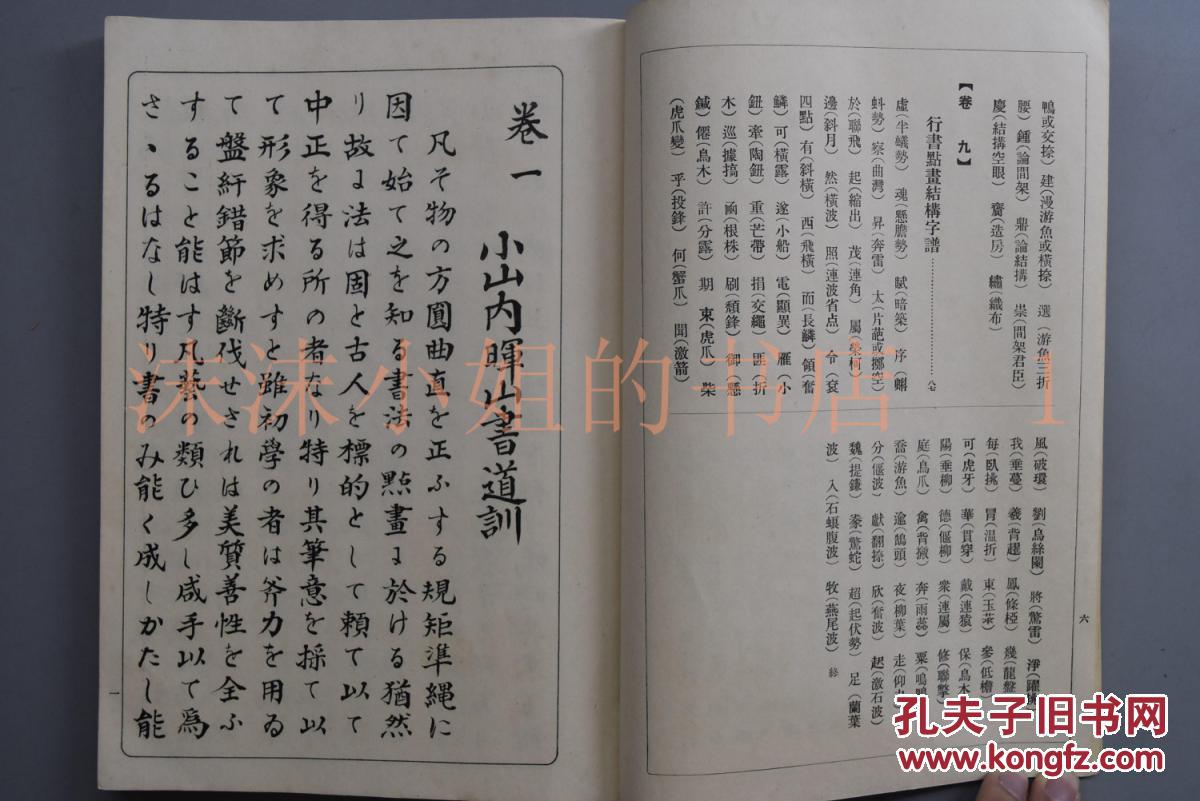 鴨(或交捺) 建(漫游魚或橫捺) 選(游魚三折
腰) 鍾(論間架) 鼎(論結搆) 崇(間架君臣)
慶(結搆空眼) 賓(造房) 繡(織布)
【卷九】
行書點畫結構字譜
虛(半蟻勢) 魂(懸膽勢) 賦(暗築) 序(蝌
蚪勢) 察(曲灣) 昇(奔雷) 太(片葩或擲空)
於(聯飛) 起(縮出) 茂(連角) 屬
邊(斜月) 然(橫波) 照(連波省点) 令(袞
四點) 有(斜橫) 西(飛橫) 而(長鱗) 領(奮
鱗) 可(橫露) 遂(小船) 電(顯異) 雁(小
鈕) 牽(陶鈕) 重(芒帶) 捐(交繩) 匪(折
木) 巡(據搞) 函(根株) 刷(頹鋒) 御(懸
鍼) 僊(鳥木) 許(分露) 期 東(虎爪) 柴
(虎爪變) 乎(投鋒) 何(蟹爪) 聞(激箭)
風(破環) 劉(烏絲闌) 將(驚雷) 淨
我(垂蔓) 羲(背趯) 鳳(條椏) 幾(龍盤
每(臥挑) 冒(温折) 東(玉茶) 參(低檐)
可(虎牙) 華(貫穿) 戴(連猿) 保(鳥木
陽(垂柳) 德(偃柳) 衆(連屬) 修(聯擊)
庭(鳥爪) 禽(背撇) 奔(雨蕊) 粟
喬(游魚) 逾(鵠頭) 夜(柳葉) 走
分(偃波) 獻(翻捺) 欣(奮波) 起(激石波)
魏(提鎌) 豢(驚蛇) 超(起伏勢) 足(蘭葉
波) 入(石蟥腹波) 牧(燕尾波) 終
六
卷一 小山内暉山書道訓
凡そ物の方圓曲直を正ふする規矩準繩に
因て始て之を知る書法の點畫ま於ける猶然
り故ま法は固と古人を標的として頼て以て
中正を得る所の者なり特り其筆意を採て以
て形象を求めすと雖初學の者は斧力を用ゐ
て盤紆錯節を斷伐せされは美質善性を全ふ
すること能はす凡藝の類ひ多し咸手以て爲
さゝるはなし特り書のみ能く成しかたし能
一
沫沫小姐的书店 1
孔夫子旧书网
KONGFZ.COM